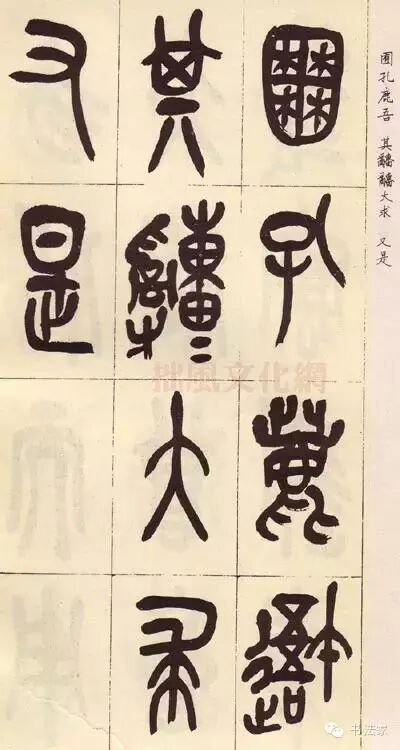 囿孔鹿吾 其大求 又是
囿孔鹿
其大求
又是
拙風文化網
书法家